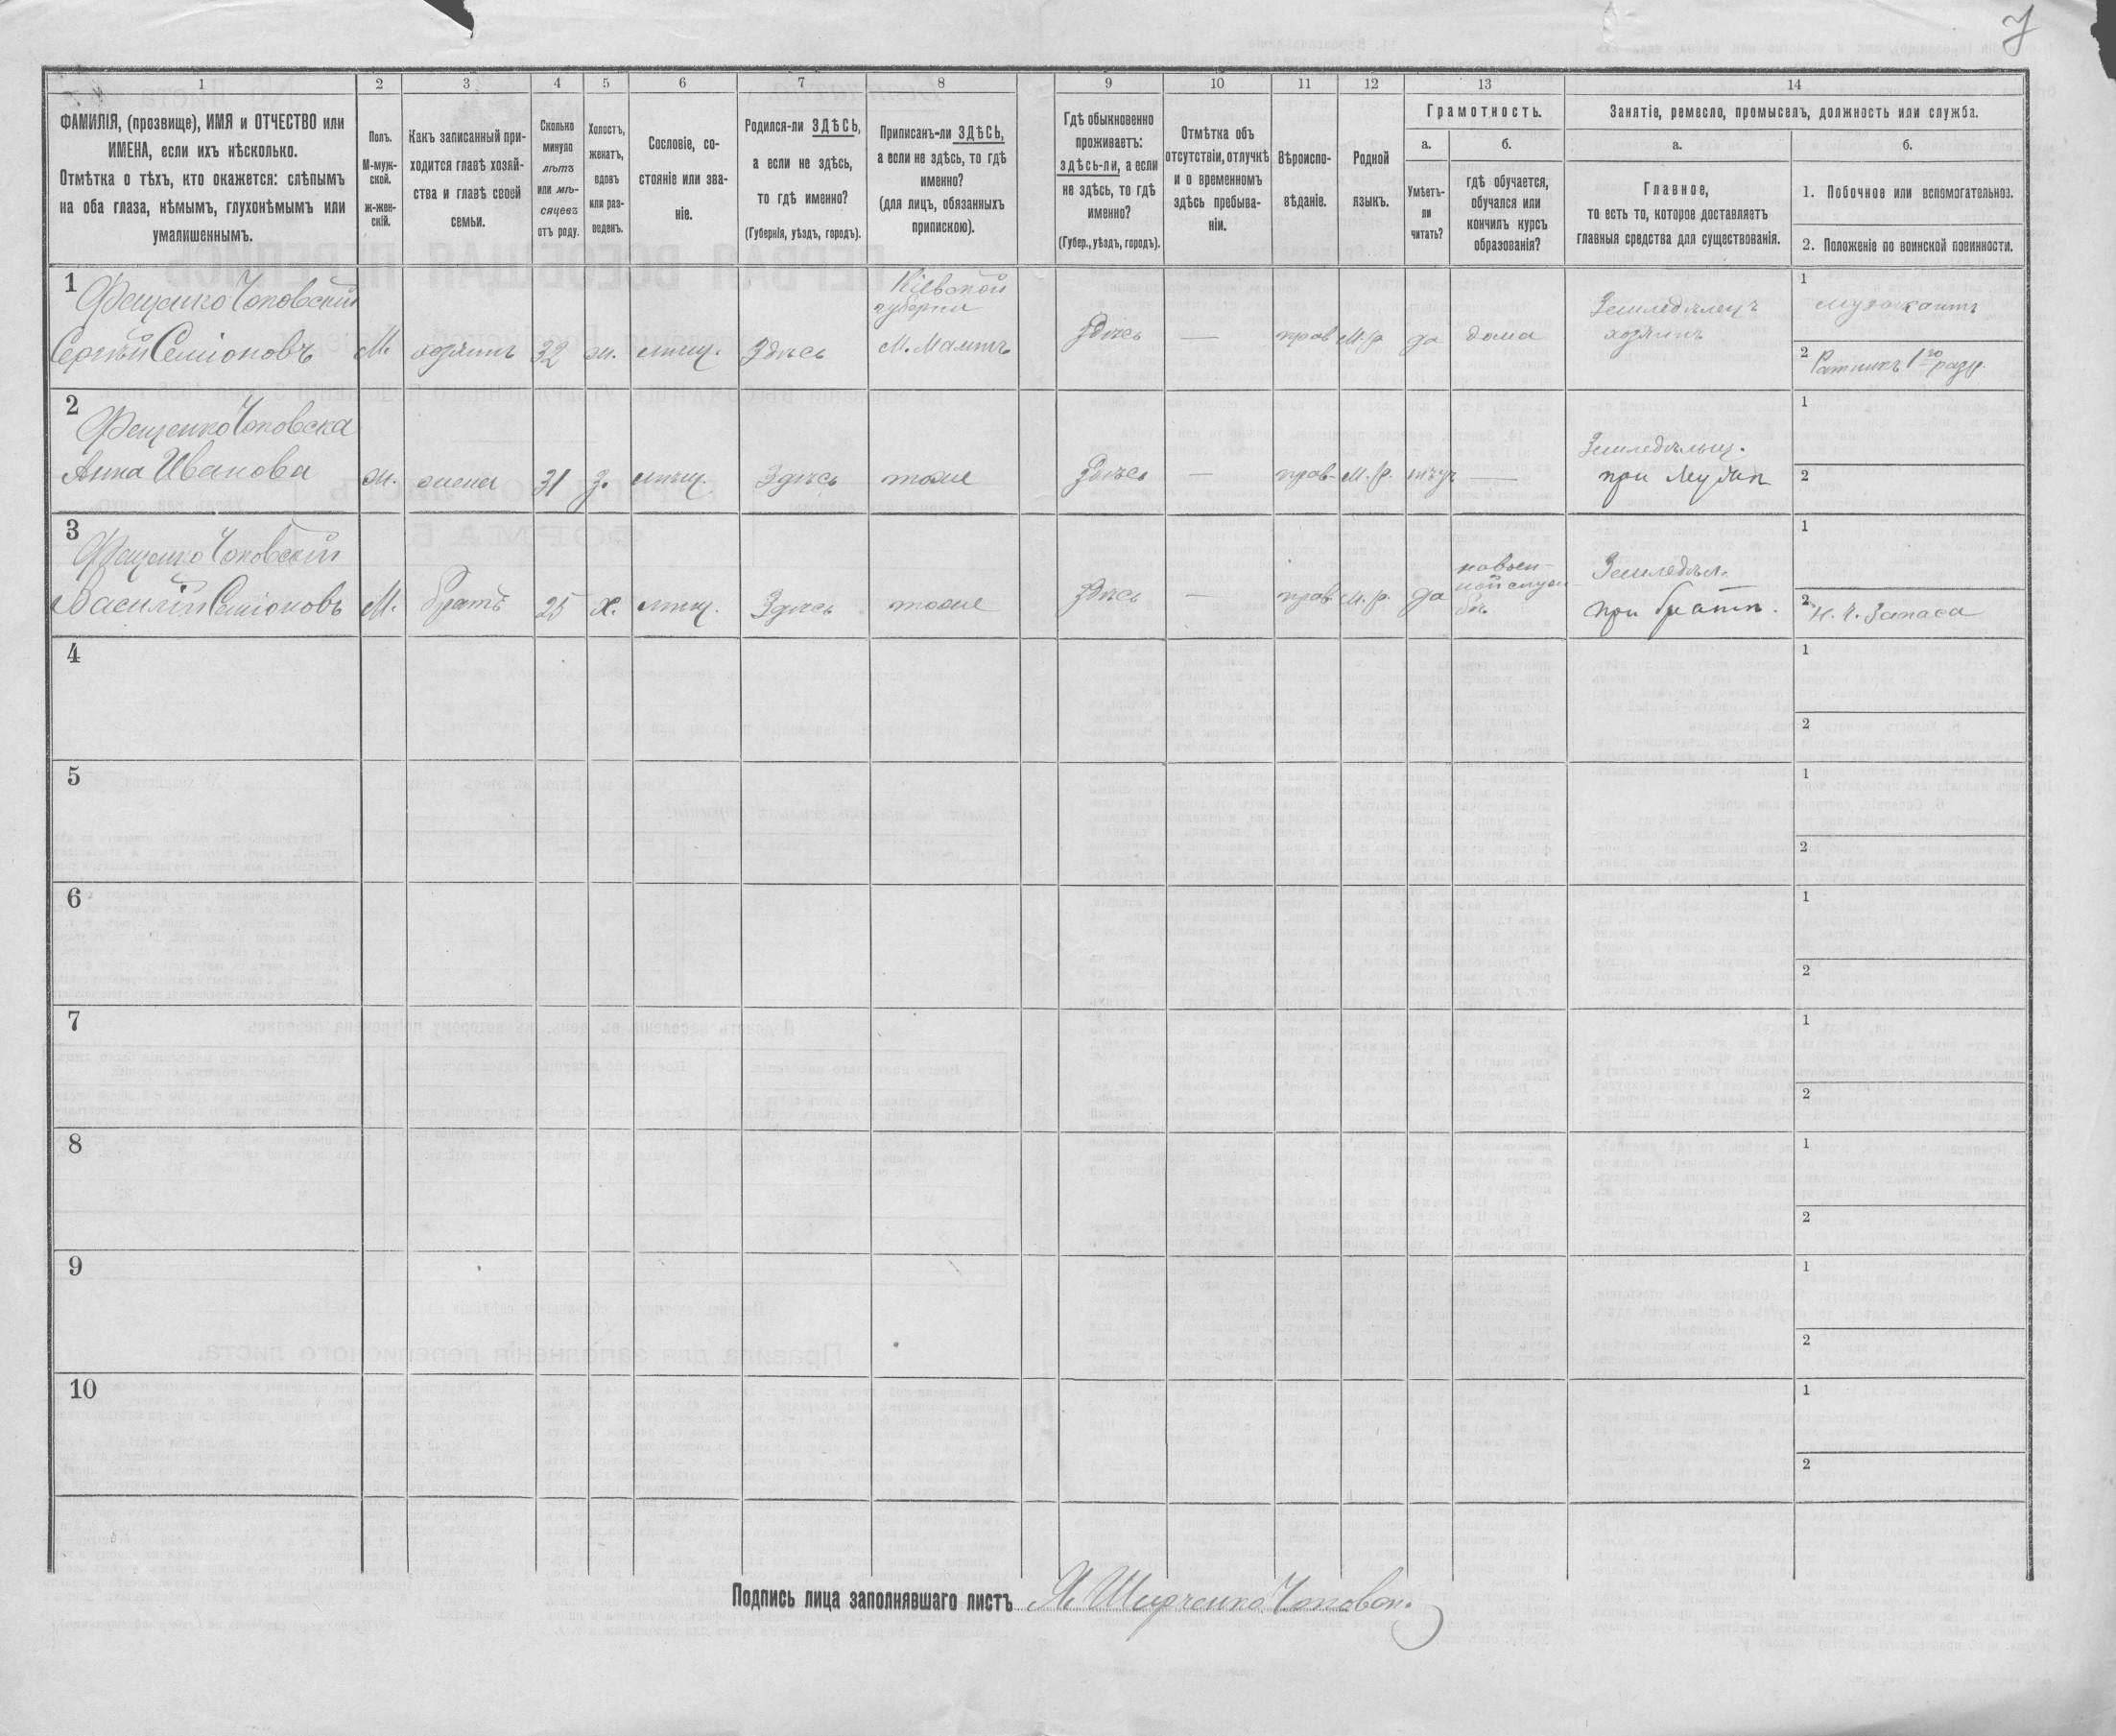 7
1 2 3 4 5 6 7 8 9 10 11 12 13 14
ФАМИЛІЯ, (прозвище), ИМЯ и ОТЧЕСТВО или
ИМЕНА, если ихъ нѣсколько.
Отмѣтка о тѣхъ, кто окажется: слѣпымъ
на оба глаза, нѣмымъ, глухонѣмымъ или
умалишеннымъ.
Полъ.
М-муж-
ской.
ж-жен-
скій.
Какъ записанный при-
ходится главѣ хозяй-
ства и главѣ своей
семьи.
Сколько
минуло
лѣтъ
или мѣ-
сяцевъ
отъ роду.
Холостъ,
женатъ,
вдовъ
или раз-
веденъ.
Сословіе, со-
стояніе или зва-
ніе.
Родился-ли ЗДѢСЬ,
а если не здѣсь,
то гдѣ именно?
(Губернія, уѣздъ, городъ).
Приписанъ-ли ЗДѢСЬ,
а если не здѣсь, то гдѣ
именно?
(для лицъ, обязанныхъ
припискою).
Гдѣ обыкновенно
проживаетъ:
здѣсь-ли, а если
не здѣсь, то гдѣ
именно?
(Губер., уѣздъ, городъ).
Отмѣтка объ
отсутствіи, отлучкѣ
и о временномъ
здѣсь пребыва-
ніи.
Вѣроиспо-
вѣданіе.
Родной
языкъ.
Грамотность.
а.
Умѣетъ-
ли
читать?
б.
гдѣ обучается,
обучался или
кончилъ курсъ
образованія?
Занятіе, ремесло, промыселъ, должность или служба.
а.
Главное,
то есть то, которое доставляетъ
главныя средства для существованія.
б.
1. Побочное или вспомогательное.
2. Положеніе по воинской повинности.
1
Фещенко Чоповскій
Сергѣй Семіоновъ
М. хозяинъ 32 ж. мѣщ. Здѣсь
Кіевской
губерніи
Здѣсь — прав М.р. да дома
Земледѣлецъ
хозяинъ
1 музыкантъ
2 Ратникъ 1го разр.
2
Фещенко Чоповска
Анна Иванова
ж. жена 31 з. мѣщ. Здѣсь тоже
Здѣсь — прав. М.р. —
Земледѣлец.
при Мужѣ
1
2
3
Фещенко Чоповскій
Василій Семіоновъ
М. братъ 25 х. мѣщ. Здѣсь тоже
Здѣсь — прав. М.р. да
на воен-
ной служ-
бѣ
Земледѣл.
при братѣ.
1
2 Запаса
4
1
2
5
1
2
6
1
2
7
1
2
8
1
2
9
1
2
10
1
2
Подпись лица заполнявшаго листъ